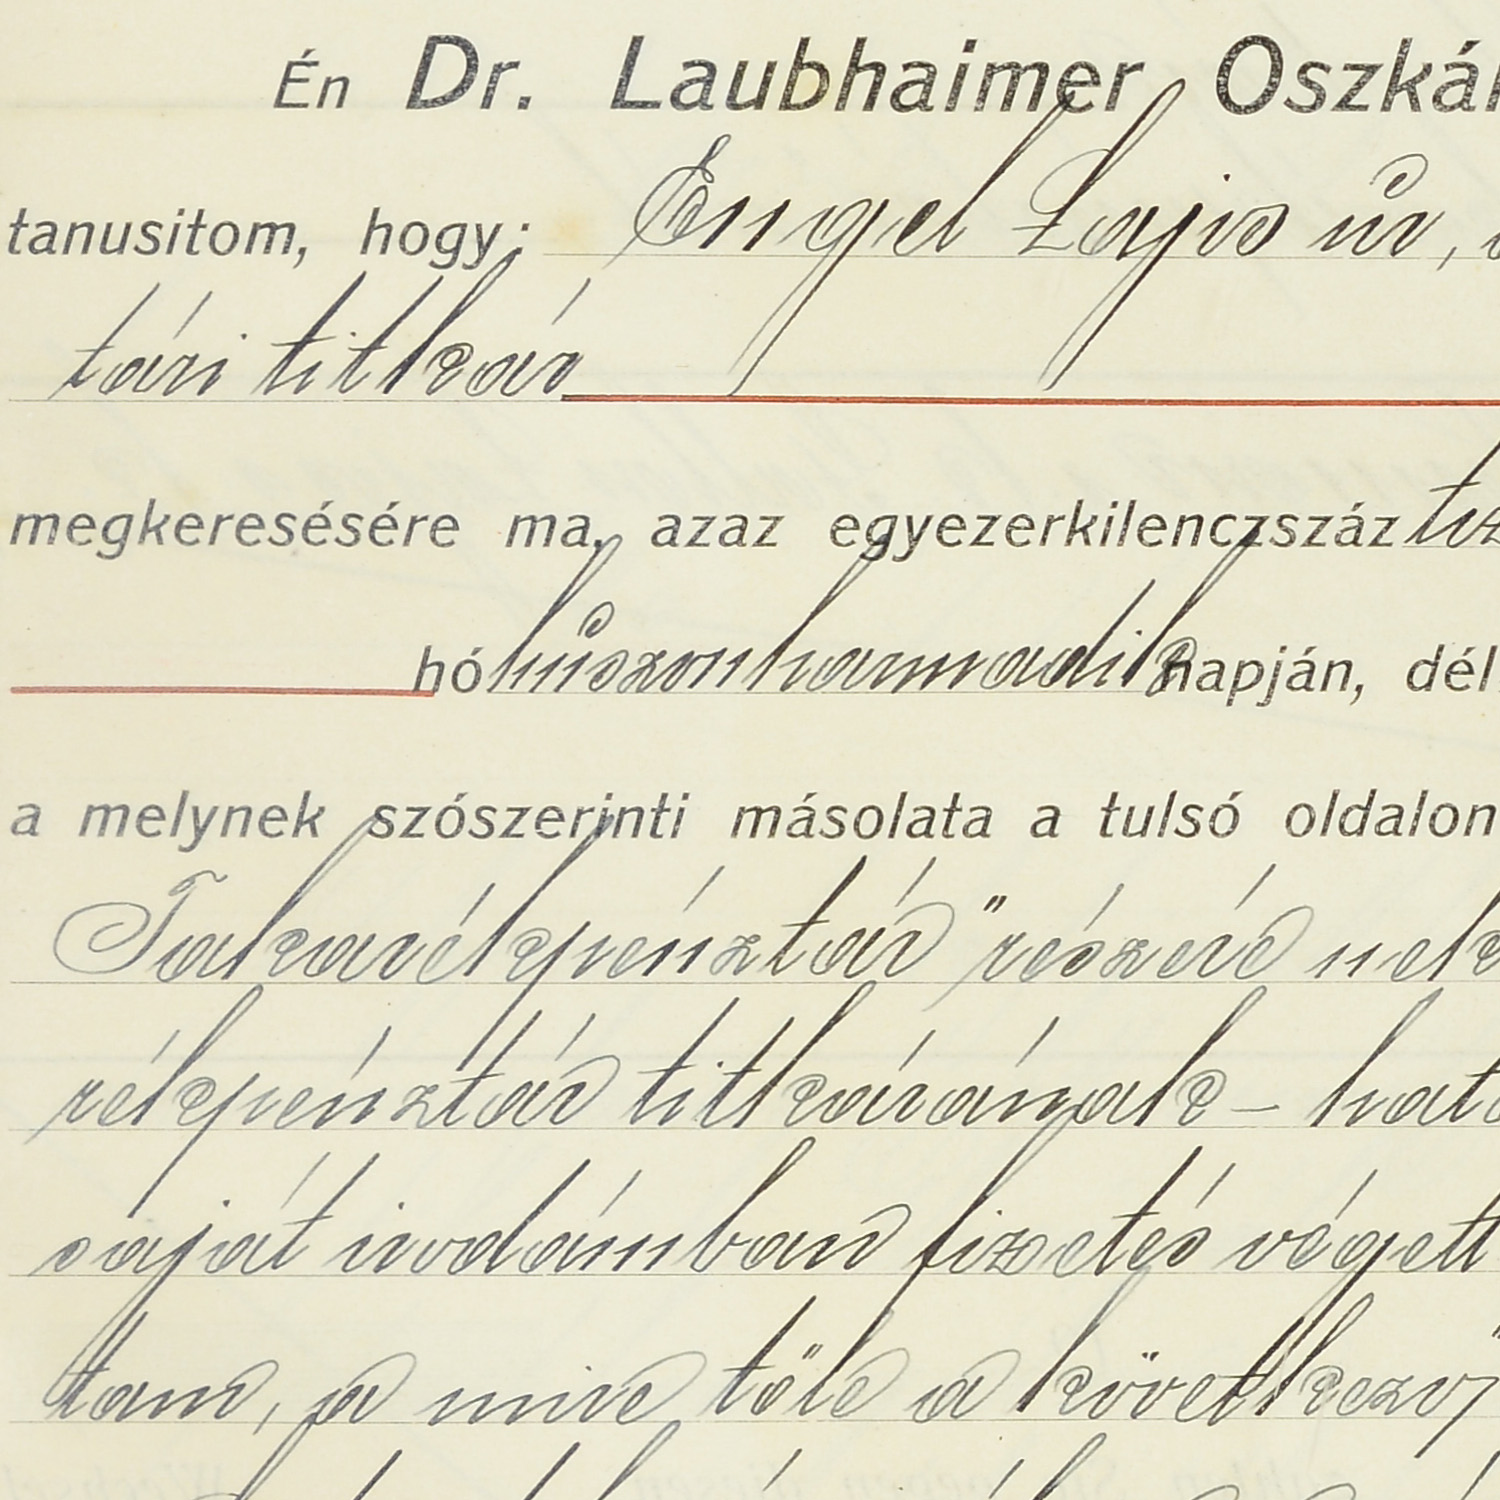 Én Dr. Laubhaimer Oszkár
tanusitom, hogy: Engel Lajos úr,
tári titkár
megkeresésére ma, azaz egyezerkilenczszáz tiz
hó huszonharmadik napján, dél
a melynek szószerinti másolata a tulsó oldalon
Takarékpénztár" részére nek
rékpénztár titkárának – hat
saját irodámban fizetés végett
tam, a mire tőle a következő